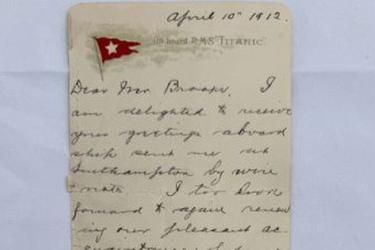 April 10th 1912.
On board R.M.S. "TITANIC"
Dear Mrs
I
am delighted to receive
your greetings aboard
ship sent me at
Southampton by wire
I too look
forward to again renew
ing our pleasant ac